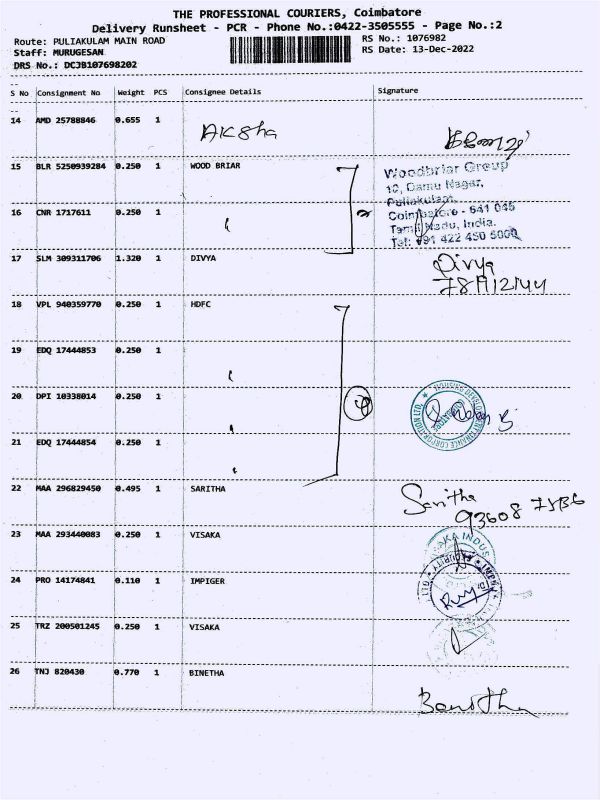 THE PROFESSIONAL COURIERS, Coimbatore
Delivery Runsheet - PCR - Phone No.:0422-3505555 - Page No.:2
Route: PULIAKULAM MAIN ROAD RS No.: 1076982
Staff: MURUGESAN RS Date: 13-Dec-2022
DRS No.: DCJB107698202
S No Consignment No Weight PCS Consignee Details Signature
14 AMD 25788846 0.655 1
AKSha
15 BLR 5250939284 0.250 1 WOOD BRIAR
Woodbriar Group
10, Damu Nagar,
Puliakulam,
16 CNR 1717611 0.250 1
Coimbatore - 641 045
Tamil Nadu, India.
Tel: +91 422 450 5000
17 SLM 309311706 1.320 1 DIVYA
Divya
18 VPL 940359770 0.250 1 HDFC
19 EDQ 17444853 0.250 1
20 DPI 10338014 0.250 1
HOUSING DEVELOPMENT FINANCE CORPORATION LTD.
21 EDQ 17444854 0.250 1
22 MAA 296829450 0.495 1 SARITHA
Saritha
23 MAA 293440083 0.250 1 VISAKA
24 PRO 14174841 0.110 1 IMPIGER
25 TRZ 200501245 0.250 1 VISAKA
26 TNJ 820430 0.770 1 BINETHA